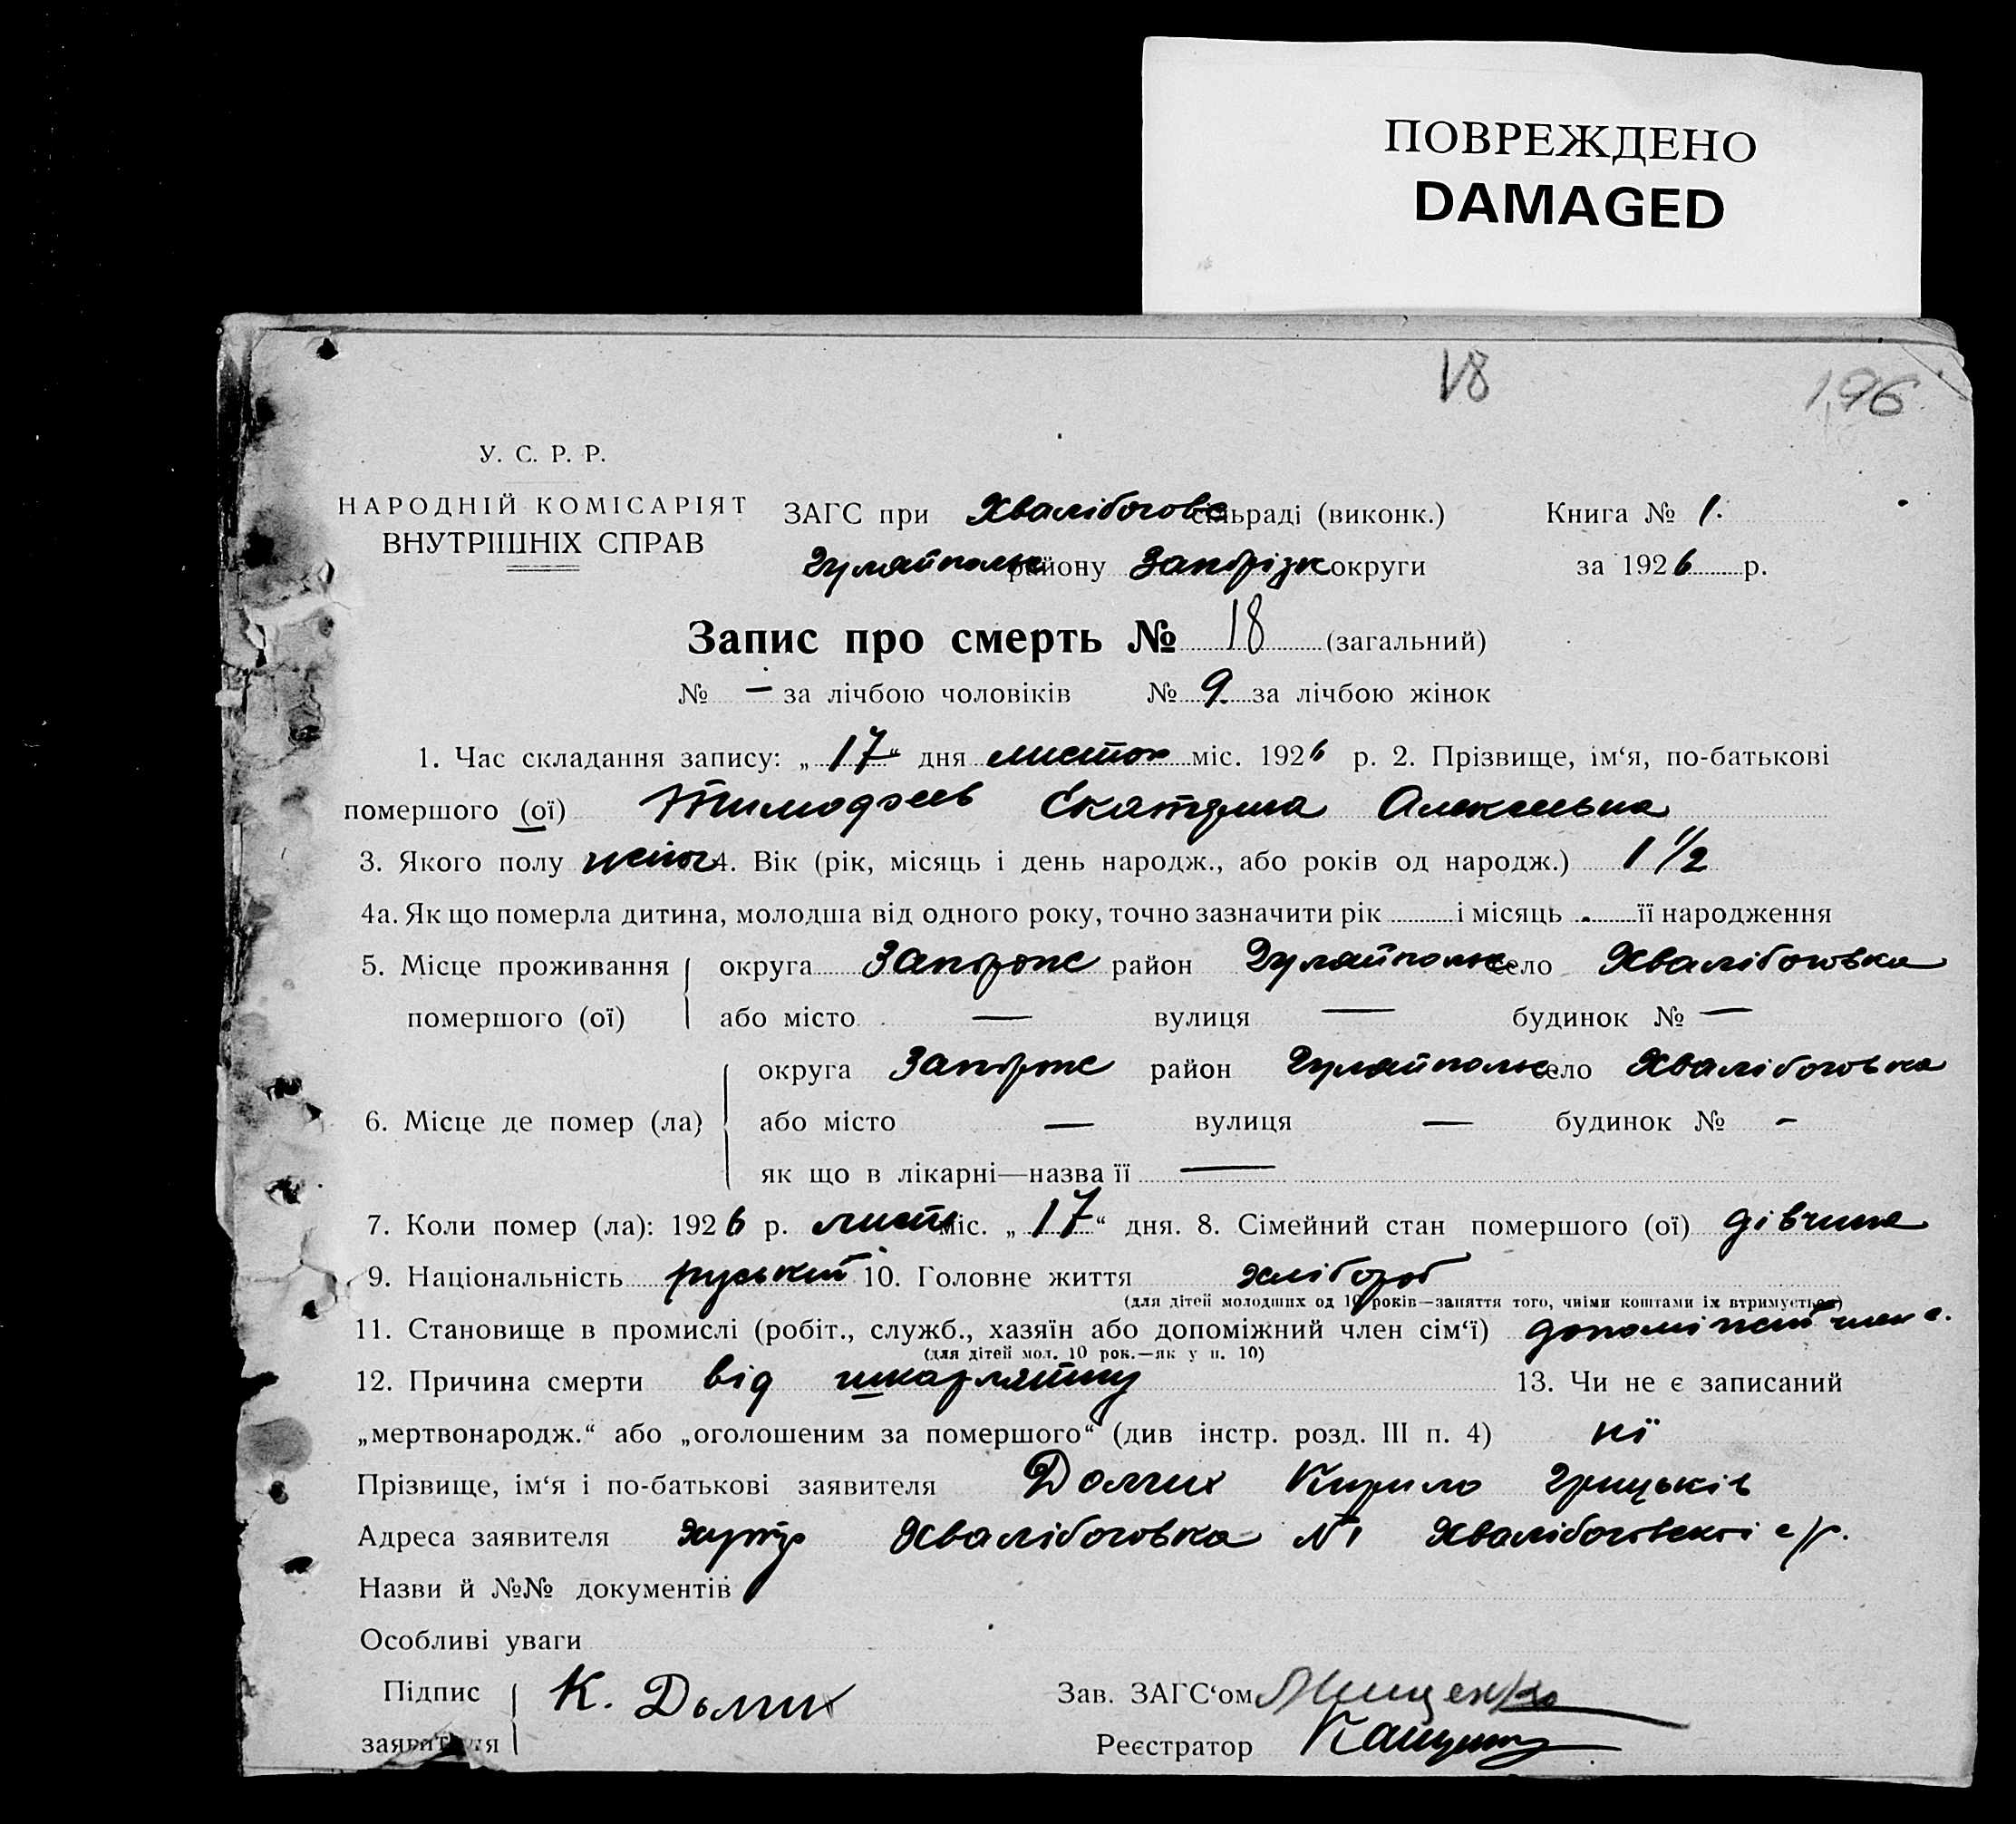 ПОВРЕЖДЕНО
DAMAGED
18 196
У. С. Р. Р.
НАРОДНІЙ КОМІСАРІЯТ
ВНУТРІШНІХ СПРАВ
ЗАГС при Хвалібогов сільраді (виконк.) Книга № 1.
Гуляйпольс району Запорізк округи за 1926 р.
Запис про смерть № 18 (загальний)
№ — за лічбою чоловіків № 9 за лічбою жінок
1. Час складання запису: „17“ дня листоп міс. 1926 р. 2. Прізвище, ім‘я, по-батькові
помершого (ої) Тимофеев Екатерина Алексеевна
3. Якого полу жіноч 4. Вік (рік, місяць і день народж., або років од народж.) 1 1/2
4а. Як що померла дитина, молодша від одного року, точно зазначити рік і місяць її народження
5. Місце проживання округа Запорож район Гуляйпольс село Хвалібоговка
помершого (ої) або місто — вулиця — будинок № —
округа Запорож район Гуляйпольс село Хвалібоговка
6. Місце де помер (ла) або місто — вулиця — будинок № -
як що в лікарні—назва її —
7. Коли помер (ла): 1926 р. лист міс. „17“ дня. 8. Сімейний стан помершого (ої) дівчина
9. Національність руський 10. Головне життя хлібороб
(для дітей молодших од 10 років—заняття того, чиїми коштами їх втримується)
11. Становище в промислі (робіт., служб., хазяїн або допоміжний член сім‘ї) допоміжний член с.
(для дітей мол. 10 рок.—як у п. 10)
12. Причина смерти від шкарлятини 13. Чи не є записаний
„мертвонародж.“ або „оголошеним за помершого“ (див інстр. розд. III п. 4) ні
Прізвище, ім‘я і по-батькові заявителя Долгих Кирило Грицьків
Адреса заявителя хутор Хвалібоговка №1 Хвалібоговскоі с/р.
Назви й №№ документів
Особливі уваги
Підпис К. Долгих Зав. ЗАГС‘ом
заявителя Реєстратор